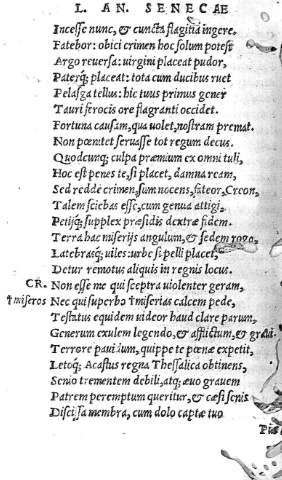 L. AN. SENECAE
Incesse nunc, & cuncta flagitia ingere.
Fatebor: obici crimen hoc solum potest
Argo reuersa: uirgini placeat pudor,
Paterq; placeat: tota cum ducibus ruet
Pelasga tellus: hic tuus primus gener
Tauri ferocis ore flagranti occidet.
Fortuna causam, qua uolet, nostram premat.
Non pœnitet seruasse tot regum decus.
Quodcunq; culpa præmium ex omni tuli,
Hoc est penes te, si placet, damna ream,
Sed redde crimen. sum nocens, fateor, Creon,
Talem sciebas esse, cum genua attigi,
Petijq; supplex præsidis dextræ fidem.
Terra hac miserijs angulum, & sedem rogo,
Latebrasq; uiles: urbe si pelli placet,
Detur remotus aliquis in regnis locus.
CR. Non esse me qui sceptra uiolenter geram,
† miseros Nec qui superbo † miserias calcem pede,
Testatus equidem uideor haud clare parum,
Generum exulem legendo, & afflictum, & graui
Terrore pauidum, quippe te pœnæ expetit,
Letoq; Acastus regna Thessalica obtinens,
Senio trementem debili, atq; æuo grauem
Patrem peremptum queritur, & cæsi senis
Discissa membra, cum dolo captæ tuo
Piæ